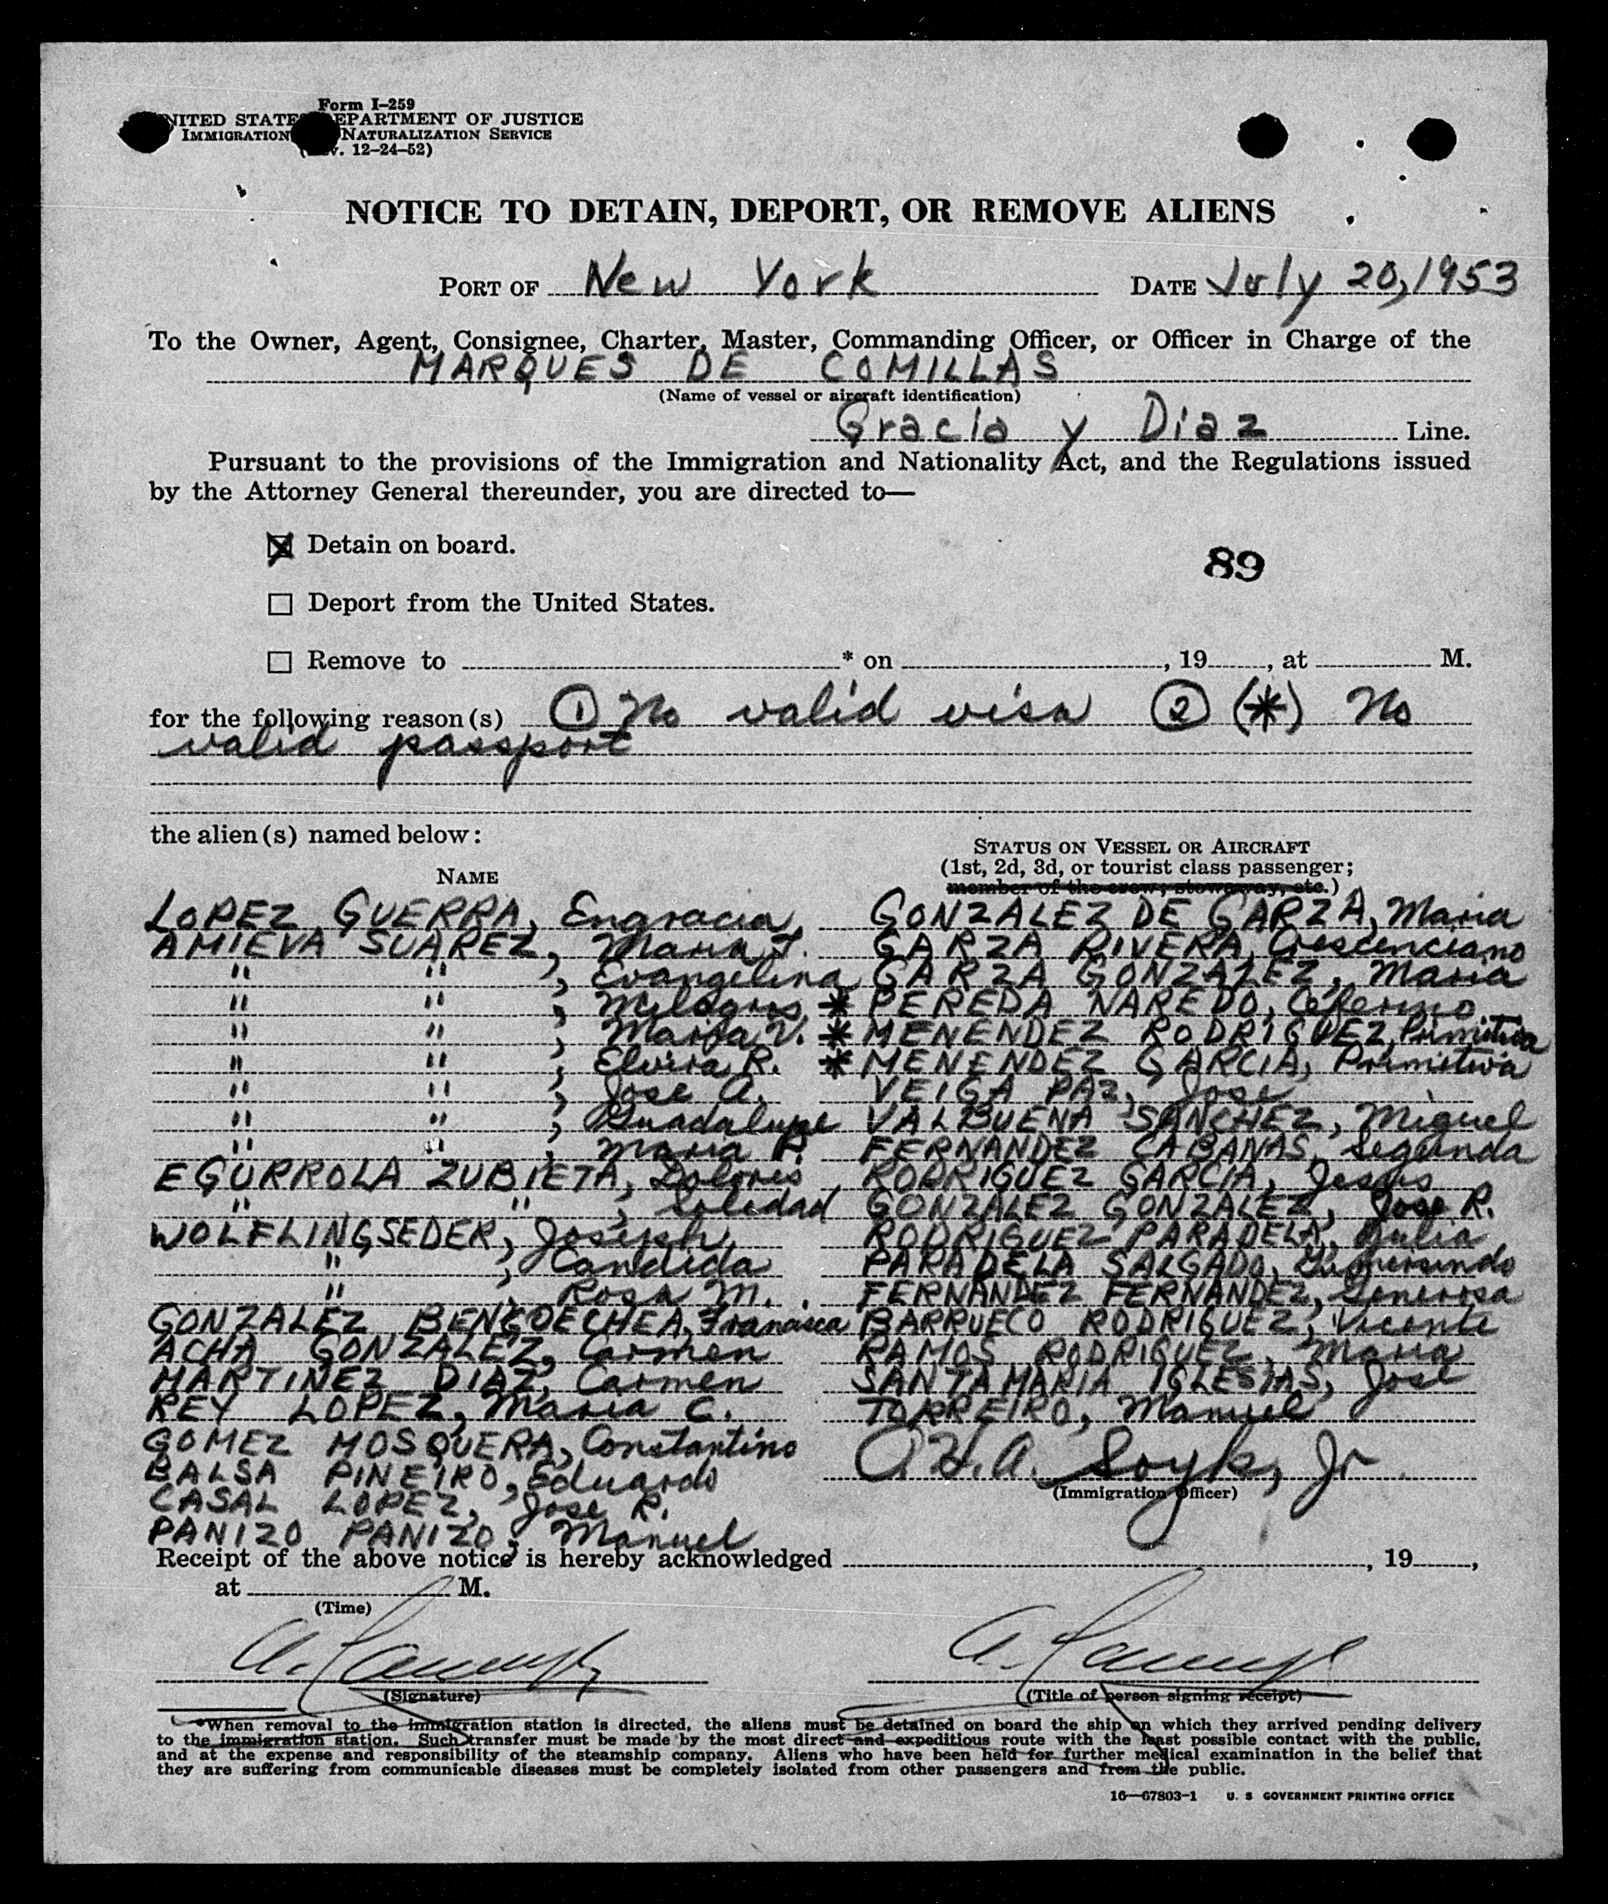 Form I-259
UNITED STATES DEPARTMENT OF JUSTICE
IMMIGRATION NATURALIZATION SERVICE
(Rev. 12-24-52)
NOTICE TO DETAIN, DEPORT, OR REMOVE ALIENS
PORT OF New York DATE July 20, 1953
To the Owner, Agent, Consignee, Charter, Master, Commanding Officer, or Officer in Charge of the
MARQUES DE COMILLAS
(Name of vessel or aircraft identification)
Gracia y Diaz Line.
Pursuant to the provisions of the Immigration and Nationality Act, and the Regulations issued
by the Attorney General thereunder, you are directed to—
Detain on board.
89
Deport from the United States.
Remove to * on , 19 , at M.
for the following reason(s) ① No valid visa ② (*) No
valid passport
the alien(s) named below:
NAME
LOPEZ GUERRA, Engracia
AMIEVA SUAREZ, Maria T.
" " , Evangelina
" " , Milagros
" " , Maria V.
" " , Elvira R.
" " , Jose A.
" " , Guadalupe
" " , Maria P.
EGURROLA ZUBIETA, Dolores
" " , Soledad
WOLFLINGSEDER, Joseph
" , Candida
" , Rosa M.
GONZALEZ BENGOECHEA, Francisca
ACHA GONZALEZ, Carmen
MARTINEZ DIAZ, Carmen
REY LOPEZ, Maria C.
GOMEZ MOSQUERA, Constantino
BALSA PINEIRO, Eduardo
CASAL LOPEZ, Jose R.
PANIZO PANIZO, Manuel
STATUS ON VESSEL OR AIRCRAFT
(1st, 2d, 3d, or tourist class passenger;
member of the crew; stowaway, etc.)
GONZALEZ DE GARZA, Maria
GARZA RIVERA, Crescenciano
GARZA GONZALEZ, Maria
* PEREDA NAREDO, Ceferino
* MENENDEZ RODRIGUEZ, Primitiva
* MENENDEZ GARCIA, Primitiva
VEIGA PAZ, Jose
VALBUENA SANCHEZ, Miguel
FERNANDEZ CABANAS, Segunda
RODRIGUEZ GARCIA, Jesus
GONZALEZ GONZALEZ, Jose R.
RODRIGUEZ PARADELA, Julia
PARADELA SALGADO, Gumersindo
FERNANDEZ FERNANDEZ, Generosa
BARRUECO RODRIGUEZ, Vicente
RAMOS RODRIGUEZ, Maria
SANTAMARIA IGLESIAS, Jose
TORREIRO, Manuel
A. Soyk, Jr.
(Immigration Officer)
Receipt of the above notice is hereby acknowledged , 19 ,
at M.
(Time)
(Signature)
(Title of person signing receipt)
*When removal to the immigration station is directed, the aliens must be detained on board the ship on which they arrived pending delivery
to the immigration station. Such transfer must be made by the most direct and expeditious route with the least possible contact with the public,
and at the expense and responsibility of the steamship company. Aliens who have been held for further medical examination in the belief that
they are suffering from communicable diseases must be completely isolated from other passengers and from the public.
16—67803-1 U. S GOVERNMENT PRINTING OFFICE